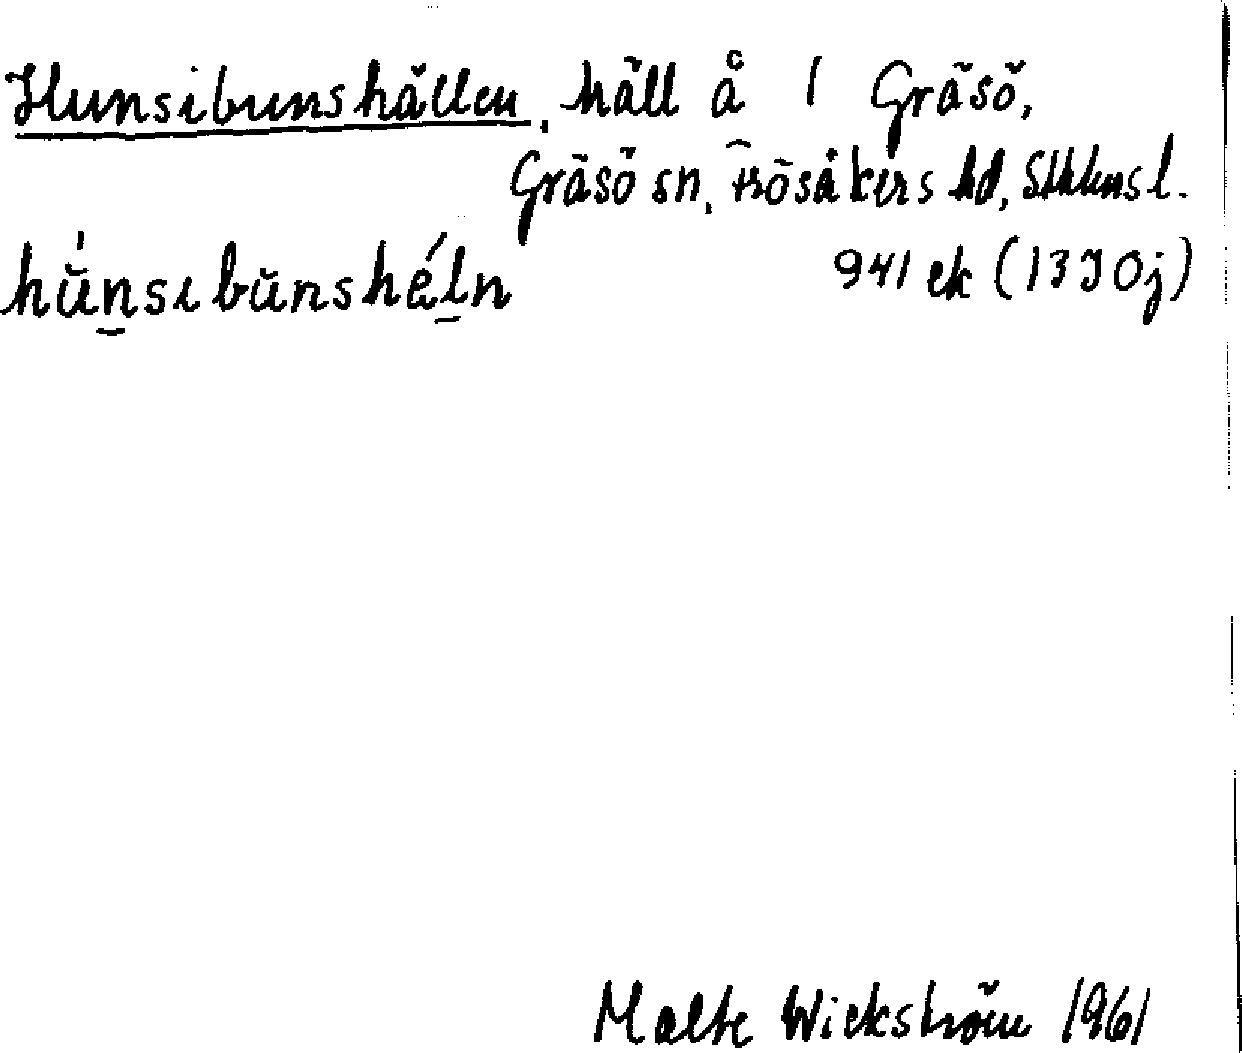 Hunsibunshällen, häll å 1 Gräsö,
Gräsö sn, Frösåkers hd, Sthlms l.
hŭ́n̲sɩbŭnshél̲n 941 ek (13I0j)
Malte Wickström 1961